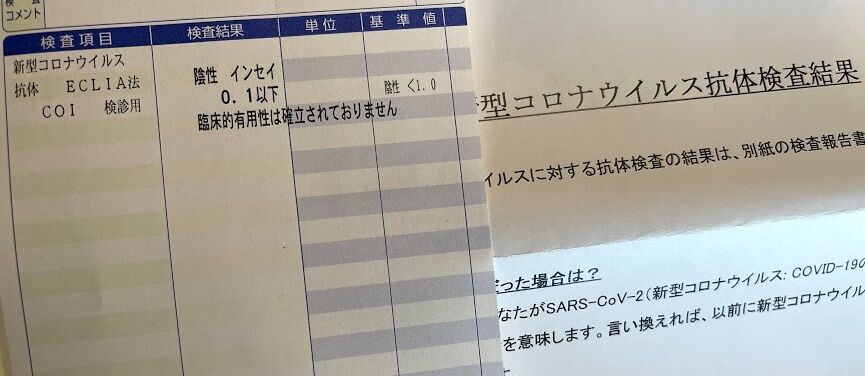 検査
コメント
検査項目 検査結果 単位 基準値
新型コロナウイルス
抗体 ECLIA法 陰性 インセイ
COI 検診用 0.1以下 陰性 <1.0
臨床的有用性は確立されておりません
型コロナウイルス抗体検査結果
イルスに対する抗体検査の結果は、別紙の検査報告書
った場合は?
なたがSARS-CoV-2(新型コロナウイルス: COVID-19の
を意味します。言い換えれば、以前に新型コロナウイル